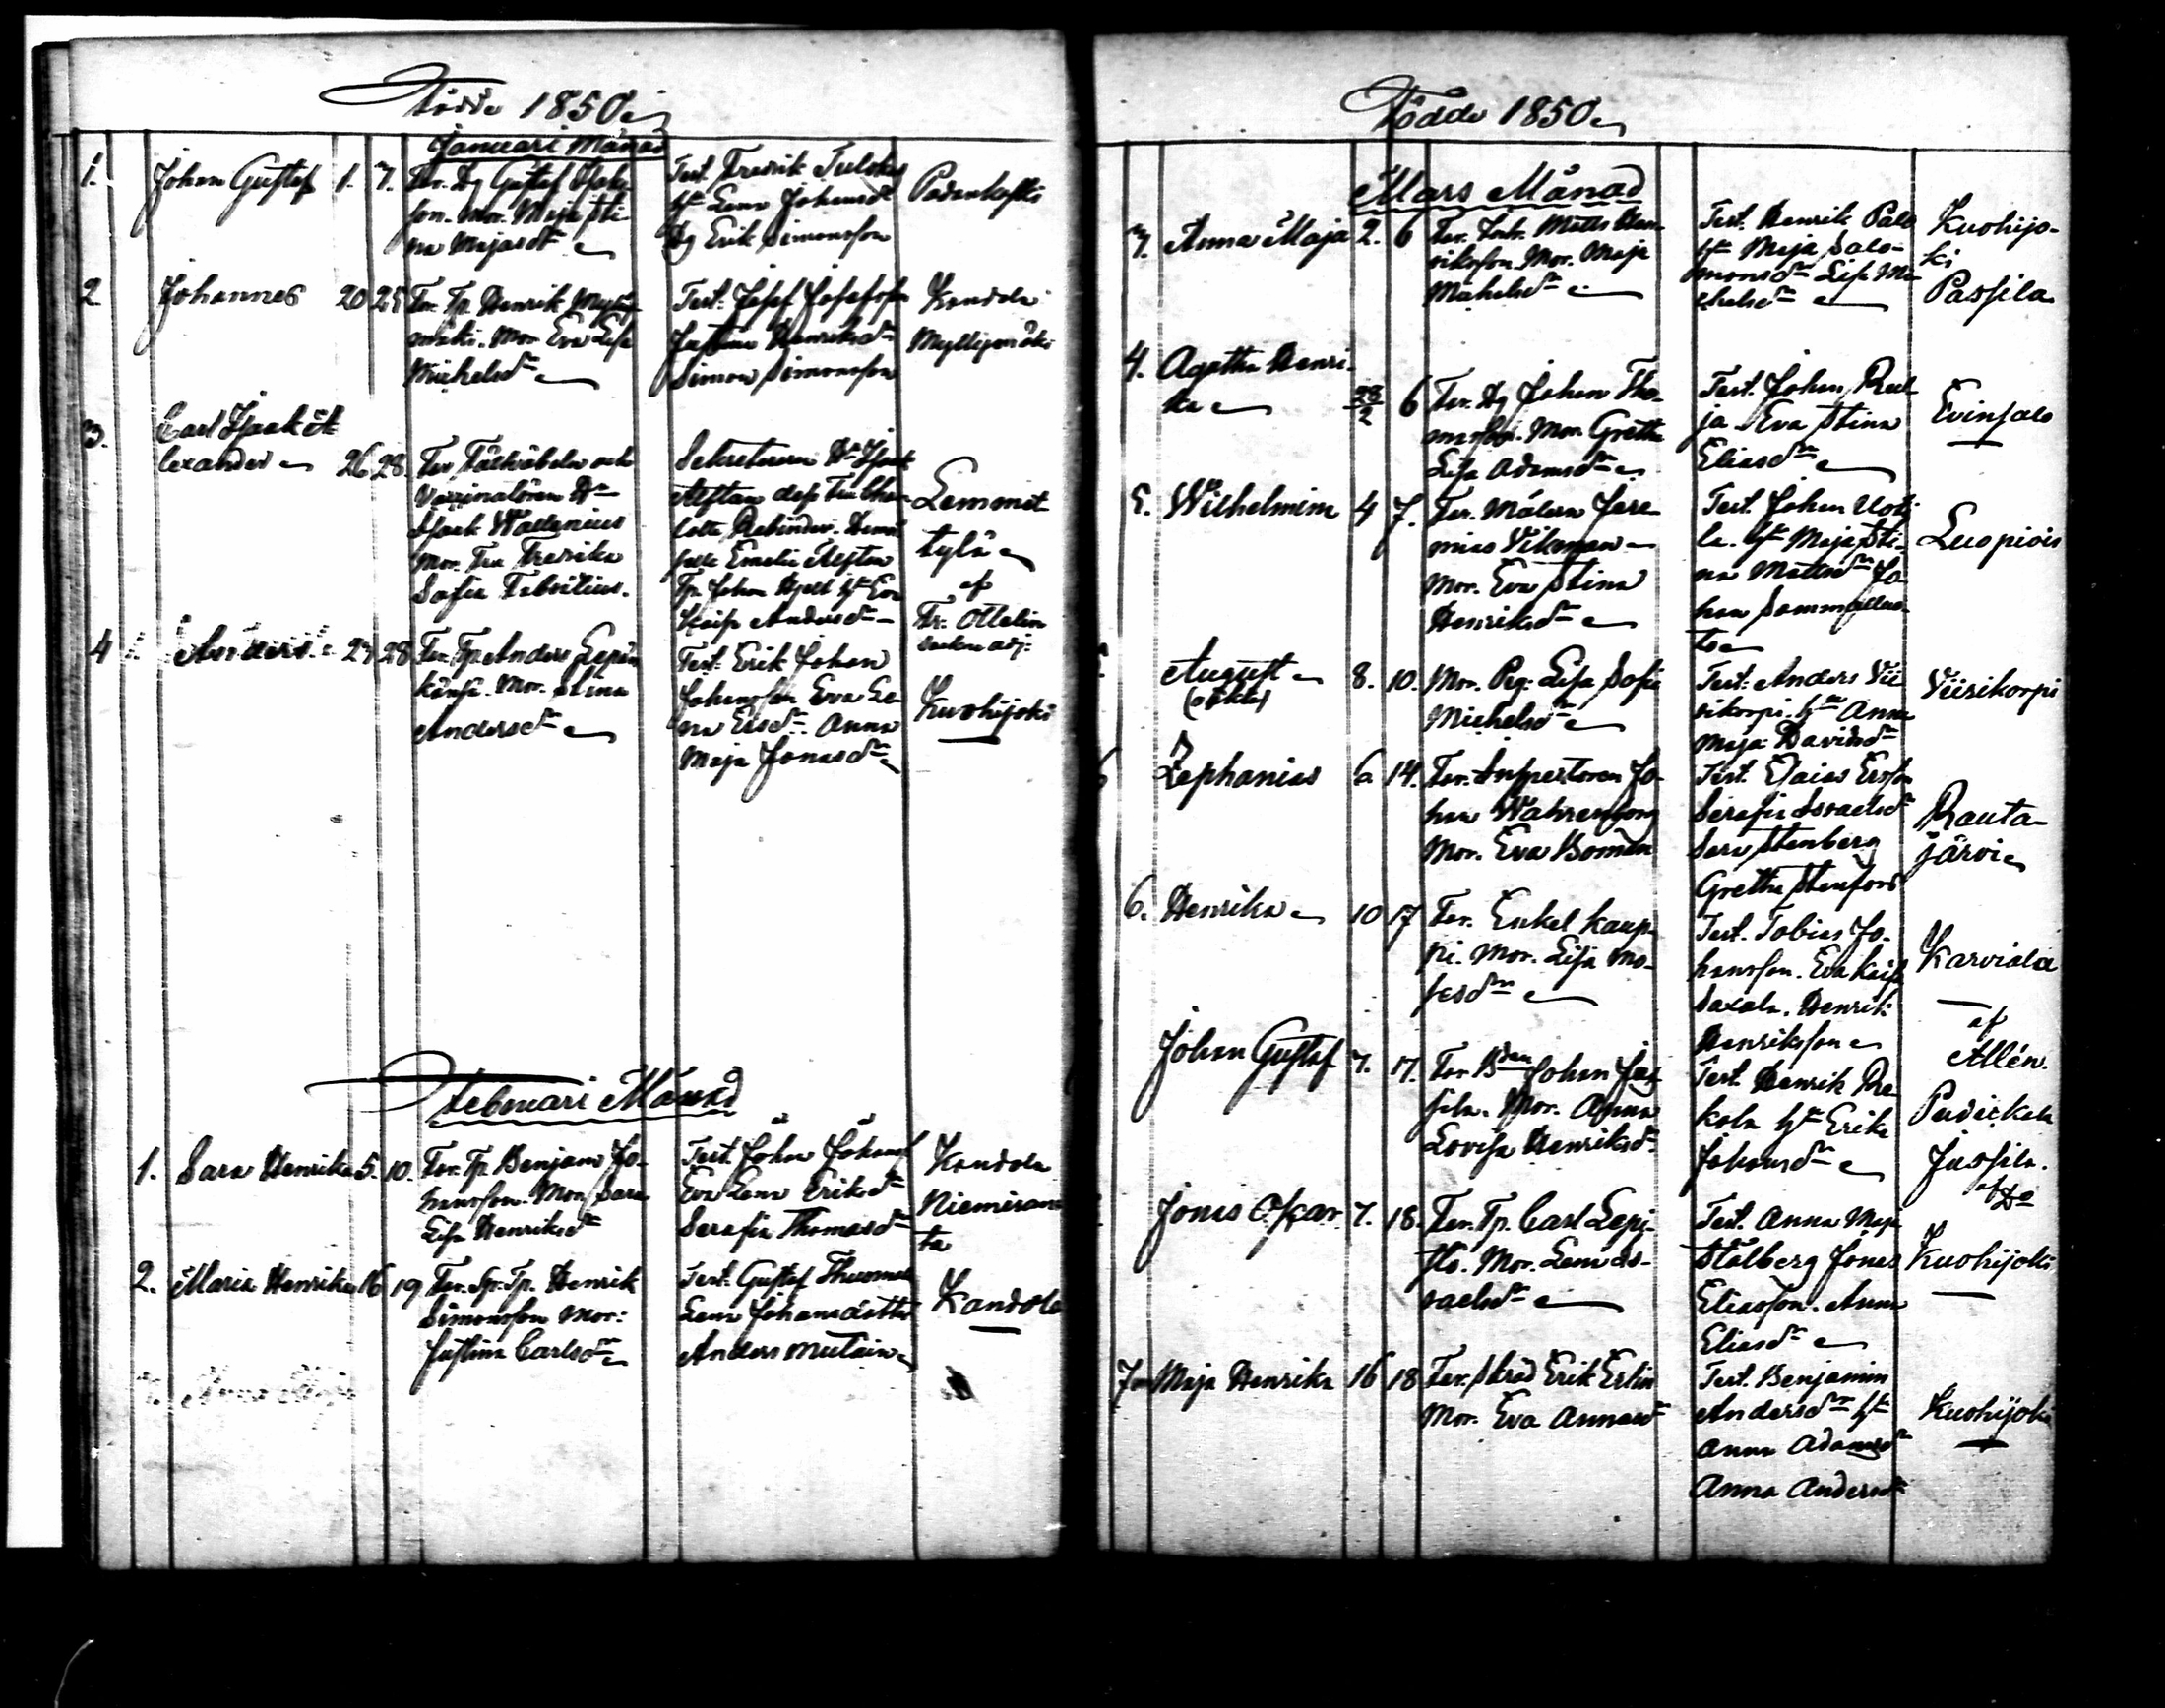 Födde 1850
Januari Månad
1. Johan Gustaf 1. 7. Far. Dg Gustaf Isaks-
son. Mor. Maja Sti-
na Majasdr
Test. Fredrik
hu Lena Johansdr
Dg Erik Simonsson
Padankoski
2 Johannes 20 25 Far. Tp. Henrik
mäki. Mor Eva Lisa
Michelsdr
Test: Josef Josefsson
Justina Henriksdr
Simon Simonsson
Kandola
Myllymäki
3. Carl Isaak A-
lexander 26 28 Far Fältväbeln och
Vaccinatören Hr
Isaak Wallenius
Mor. Fru Fredrika
Sofia Fabritius.
Sekreteraren Hr Isaak
Fru Char-
lotte Rebinder.
Emelie
Tp. Johan hu Eva
Kaisa Andersdr
Lemmet
tylä
af
Hr. Ottelin
adj:
4 1. Anders 23 28 Far. Tp Anders Lepin
känsä. Mor. Stina
Andersdr
Test: Erik Johan
Johansson Eva Le-
na Ersdr. Anna
Maja Jonasdr
Kuohijoki
Februari Månad
1. Sara Henrika 5. 10. Far. Tp. Benjam Jo-
hansson. Mor Sara
Lisa Henriksdr
Test. Johan Johans
Eva Lena Eriksdr
Serafia Thomasdr
Kandola
Niemiran
ta
2. Maria Henrika 16 19 Far. Sp. Tp. Henrik
Simonsson Mor:
Justina Carlsdr
Test: Gustaf Thuomas
Lena Johansdotter
Anders Mutain
Kandola
Anna Maja
Födde 1850
Mars Månad
3. Anna Maja 2. 6 Far. Matts Hen-
riksson. Mor. Maja
Michelsdr
Test. Henrik Palo
hu Maja Salo-
monsdr Lisa Mi-
chelsdr
Kuohijo-
ki
Passila
4. Agatha Henri-
ka 28/2 6 Far. Dg Johan Tho-
masson. Mor. Gretha
Lisa Adamsdr
Test. Johan Rul-
ja Eva Stina
Eliasdr
Evinsalo
5. Wilhelmina 4 7. Far. Målaren Jere-
mias Vikman
Mor. Eva Stina
Henriksdr
Test. Johan Uoti-
la. hu Maja Sti-
na Mattsdr Jo-
han Sommallas-
to
Luopiois
August 8. 10. Mor. Pig. Lisa Sofia
(oäkta)
Michelsdr
Test: Anders Vii-
rikorpi. hu Anna
Maja Davidsdr
Viirikorpi
Zephanias 6 14. Far. Inspectoren Jo-
han Wahrenborg
Mor. Eva Boman
Test. Esaias Ersson
Serafia Israelsdr
Sara Stenberg
Gretha Stenfors
Rauta-
järvi
6. Henrika 10 17 Far. Enkel Kaup-
pi. Mor. Lisa Mo-
sesdr
Test. Tobias Jo-
hansson. Eva Kaisa
Saxala. Henrik
Henriksson
Karviala
af
Allén.
Johan Gustaf 7. 17. Far. Bdn Johan Jus-
sila. Mor. Anna
Lovisa Henriksdr
Test. Henrik Re-
kola hu Erika
Johansdr
Puduckala
Jussila.
af Do
Jonas Oskar 7. 18. Far. Tp. Carl Lepi-
stö. Mor. Lena Is-
raelsdr
Test. Anna Maja
Stålberg Jonas
Eliasson. Anna
Eliasdr
Kuohijoki
7 Maja Henrika 16 18 Far. Skräd Erik Erlin
Mor. Eva Annasdr
Test. Benjamin
Andersdr hu
Anna Adamsdr
Anna Andersdr
Kuohijoki